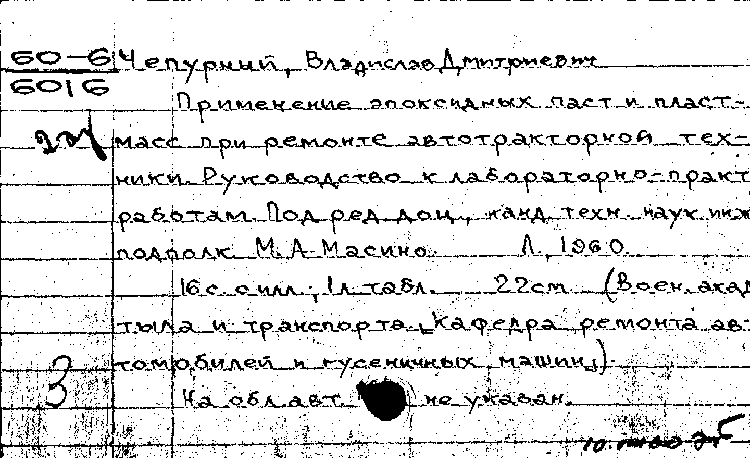 60-6 Чепурний, Владислав Дмитриевич
6016
Применение эпоксидных паст и пласт-
масс при ремонте автотракторной тех-
ники. Руководство к лабораторно-практ
работам. Под ред. доц., канд. техн. наук инж
подполк. М.А. Масино. Л, 1960.
16 с. с илл.; 1 л. табл. 22 cm (Воен. акад
тыла и транспорта, Кафедра ремонта ав-
томобилей и гусеничных машин.)
3
На обл. авт. не указан.